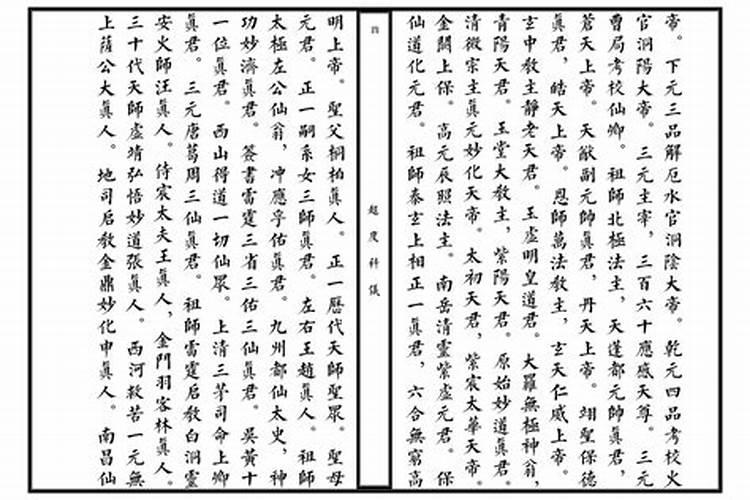 帝。下元三品解厄水官洞陰大帝。乾元四品考校火
官洞陽大帝。三元主宰，三百六十應感天尊。三元
曹局考校仙卿。祖師北極法主，天蓬都元帥眞君，
蒼天上帝。天猷副元帥眞君，丹天上帝。翊聖保德
眞君，皓天上帝。恩師萬法教主，玄天仁威上帝。
玄中教主靜老天君。玉虛明皇道君。大羅無極神翁，
青陽天君。玉堂大教主，紫陽天君。原始妙道眞君。
清微宗主眞元妙化天帝。太初天君，紫宸太華天帝。
金闕上保。高元辰照法主。南岳清靈紫虛元君。保
仙道化元君。祖師泰玄上相正一眞君，六合無窮高
四
超度科儀
明上帝。聖父桐柏眞人。正一曆代天師聖眾。聖母
元君。正一嗣系女三師眞君。左右王趙眞人。祖師
太極左公仙翁，冲應孚佑眞君。九州都仙太史，神
功妙濟眞君。簽書雷霆三省三佑三仙眞君。吳黃十
一位眞君。西山得道一切仙眾。上清三茅司命上卿
眞君。三元唐葛周三仙眞君。祖師雷霆啟教白洞靈
安火師汪眞人。侍宸太夫王眞人，金門羽客林眞人。
三十代天師虛靖弘悟妙道張眞人。西河救苦一元無
上薩公大眞人。地司啟教金鼎妙化申眞人。南昌仙